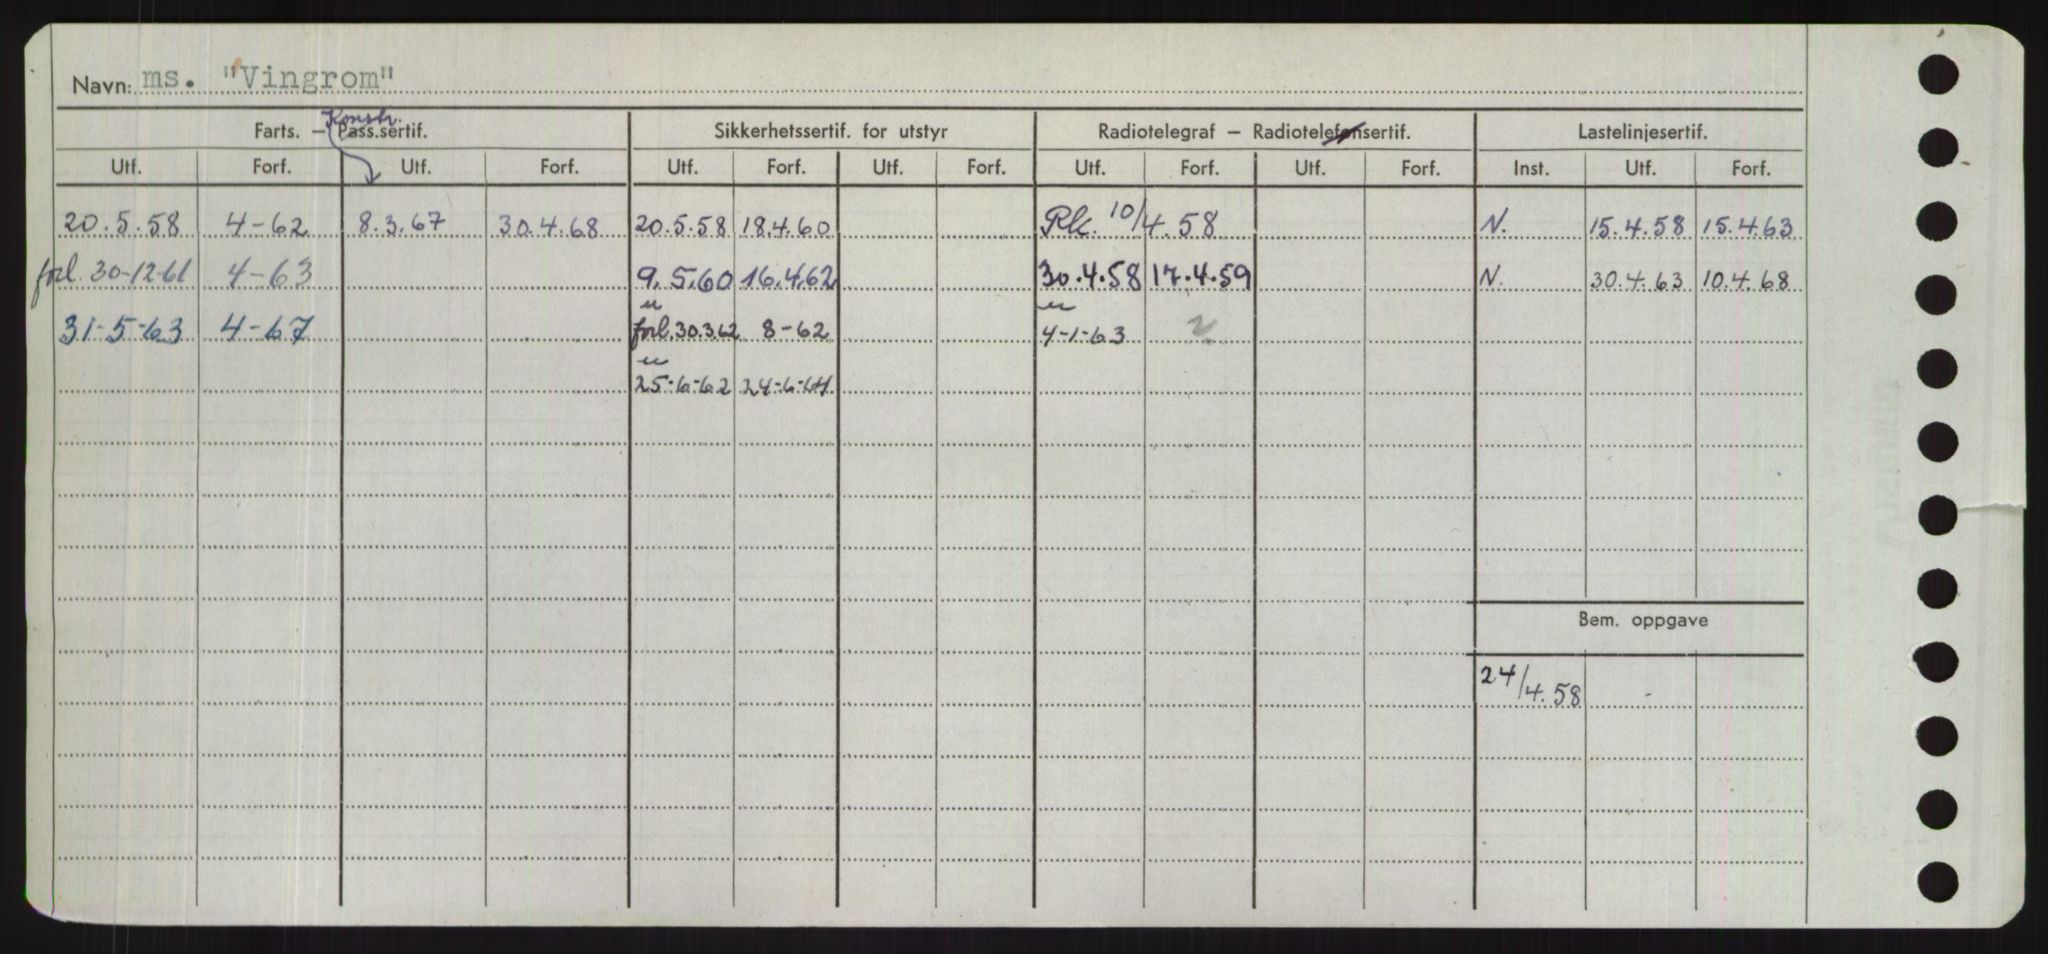 Navn: ms. "Vingrom"
Konstr.
Farts. – Pass.sertif. Sikkerhetssertif. for utstyr Radiotelegraf – Radiotelefonsertif. Lastelinjesertif.
Utf. Forf. Utf. Forf. Utf. Forf. Utf. Forf. Utf. Forf. Utf. Forf. Inst. Utf. Forf.
20.5.58 4-62 8.3.67 30.4.68 20.5.58 18.4.60 Pk. 10/4.58 N. 15.4.58 15.4.63
forl. 30-12-61 4-63 9.5.60 16.4.62 30.4.58 17.4.59 N. 30.4.63 10.4.68
31-5-63 4-67 forl. 30.3.62 8-62 4-1-63
25-6-62 24-6-64
Bem. oppgave
24/4.58